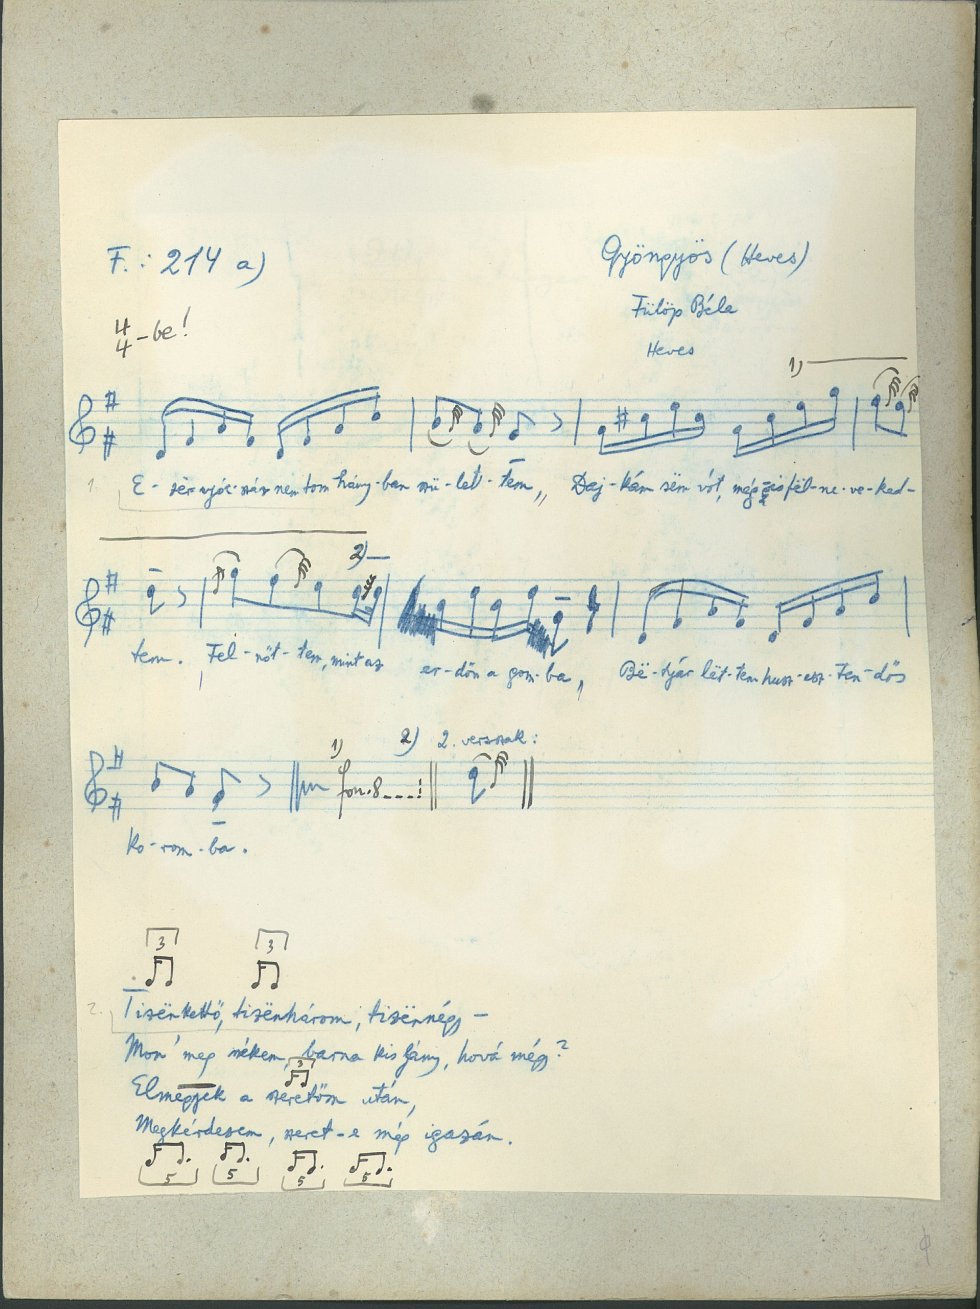 F.: 214 a)
Gyöngyös (Heves)
Fülöp Béla
Heves
4/4-be!
1)
1. E-zër nyóc-száz nem tom hány-ban szü-let-tem,, Daj-kám sëm vót, még is fel-ne-ve-ked-
2)
tem. Fel-nőt-tem, mint az er-dőn a gom-ba, Bë-tyár lët-tem husz-esz-ten-dős
1) 2) 2. versszak:
ko-rom-ba.
3 3
2. Tizënkettő, tizënhárom, tizënnégy –
Mon' meg nékem, barna kis lány, hová mégy?
3
Elmegyek a szeretőm után,
Megkérdezem, szeret-e még igazán.
5 5 5 5